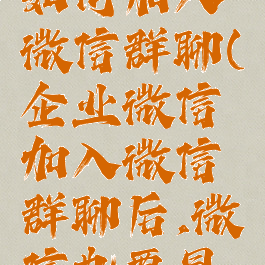 如何加入
微信群聊(
企业微信
加入微信
群聊后,微